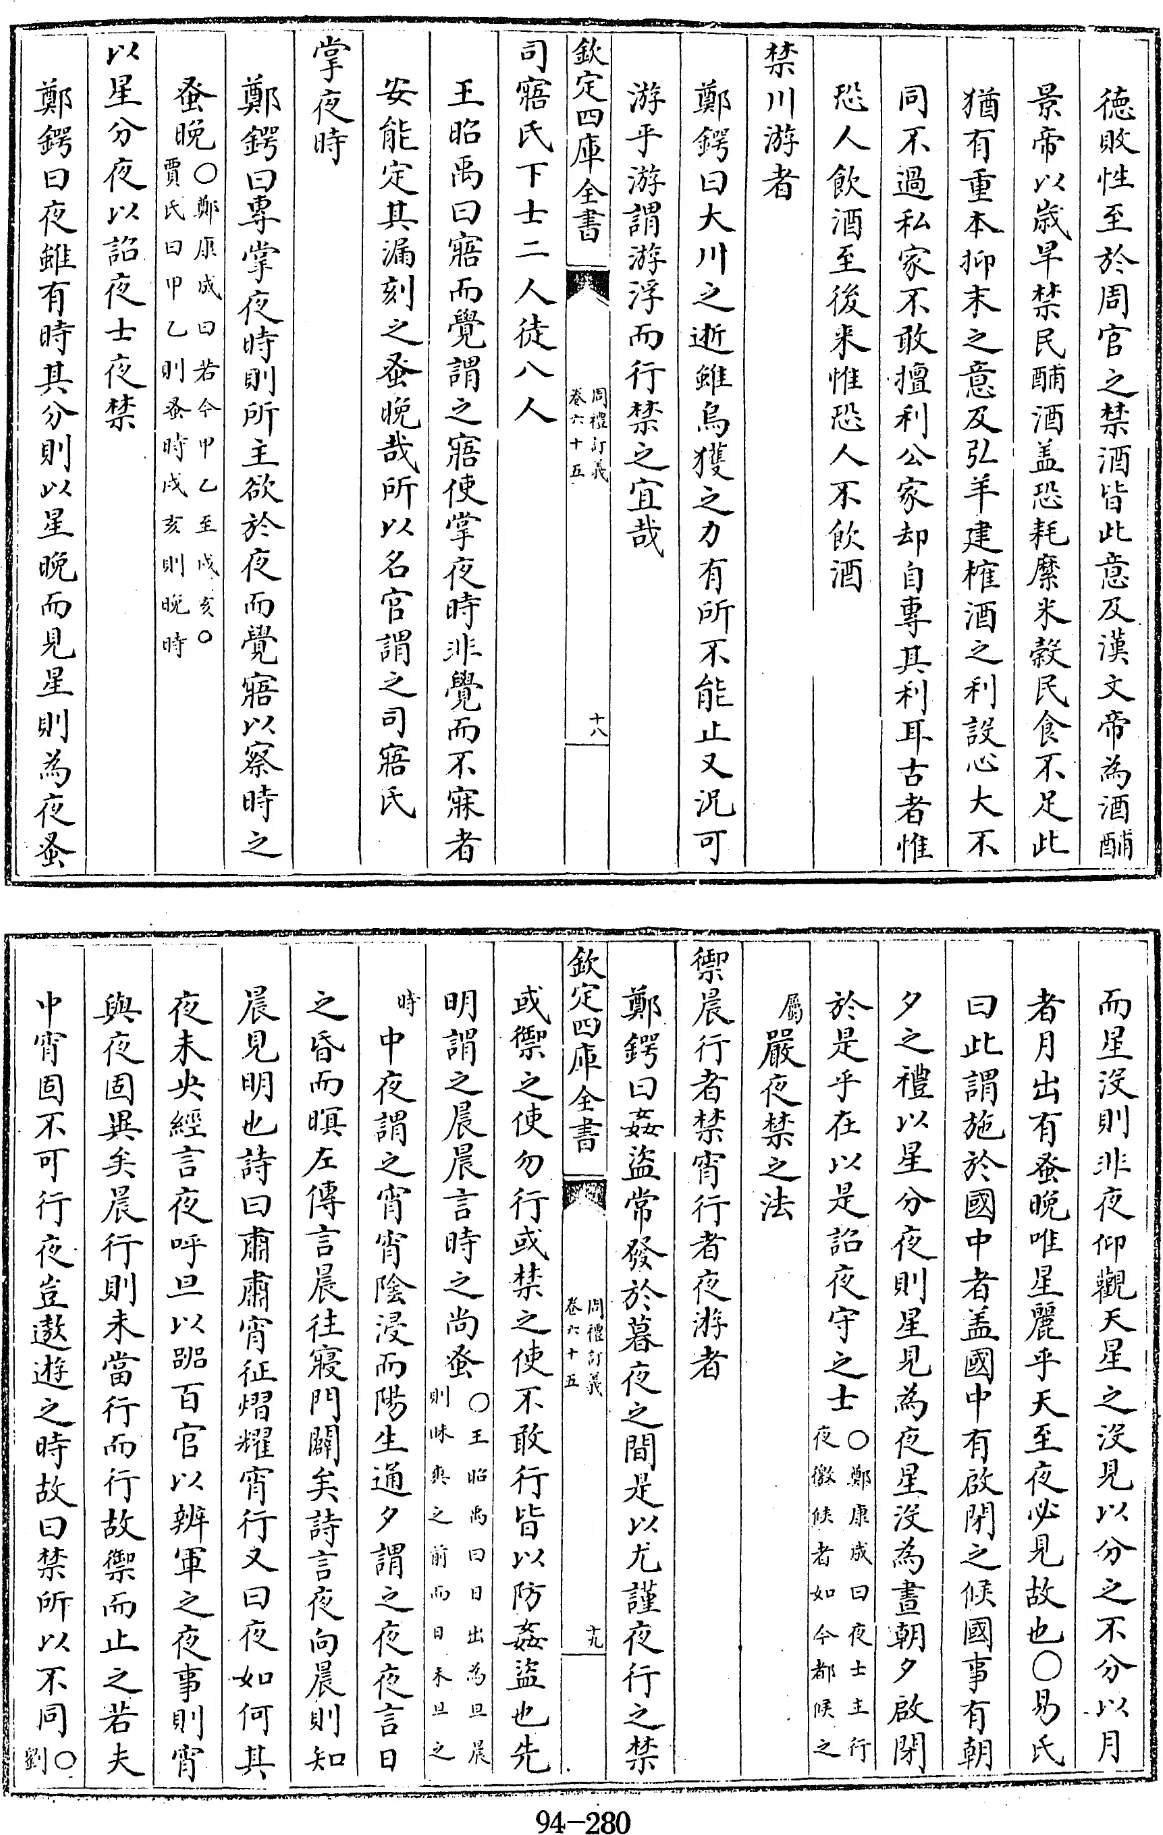 德敗性至於周官之禁酒皆此意及漢文帝為酒酺
景帝以歲旱禁民酺酒盖恐耗縻米穀民食不足此
猶有重本抑末之意及弘羊建榷酒之利設心大不
同不過私家不敢擅利公家却自專其利耳古者惟
恐人飲酒至後来惟恐人不飲酒
禁川游者
鄭鍔曰大川之逝雖烏獲之力有所不能止又况可
游乎游謂游浮而行禁之宜哉
欽定四庫全書 周禮訂義 卷六十五 十八
司寤氏下士二人徒八人
王昭禹曰寤而覺謂之寤使掌夜時非覺而不寐者
安能定其漏刻之蚤晚哉所以名官謂之司寤氏
掌夜時
鄭鍔曰專掌夜時則所主欲於夜而覺寤以察時之
蚤晚〇鄭康成曰若今甲乙至戌亥〇
賈氏曰甲乙則蚤時戌亥則晚時
以星分夜以詔夜士夜禁
鄭鍔曰夜雖有時其分則以星晚而見星則為夜蚤
而星沒則非夜仰觀天星之沒見以分之不分以月
者月出有蚤晚唯星麗乎天至夜必見故也〇易氏
曰此謂施於國中者盖國中有啟閉之候國事有朝
夕之禮以星分夜則星見為夜星沒為晝朝夕啟閉
於是乎在以是詔夜守之士〇鄭康成曰夜士主行
夜徼候者如今都候之
屬嚴夜禁之法
禦晨行者禁宵行者夜游者
鄭鍔曰姦盜常發於暮夜之間是以尤謹夜行之禁
欽定四庫全書 周禮訂義 卷六十五 十九
或禦之使勿行或禁之使不敢行皆以防姦盜也先
明謂之晨晨言時之尚蚤〇王昭禹曰日出為旦晨
則昧爽之前而日未旦之
時中夜謂之宵宵陰浸而陽生通夕謂之夜夜言日
之昏而暝左傳言晨往寢門闢矣詩言夜向晨則知
晨見明也詩曰肅肅宵征熠耀宵行又曰夜如何其
夜未央經言夜呼旦以嘂百官以辨軍之夜事則宵
與夜固異矣晨行則未當行而行故禦而止之若夫
中宵固不可行夜豈遨遊之時故曰禁所以不同〇
劉
94-280